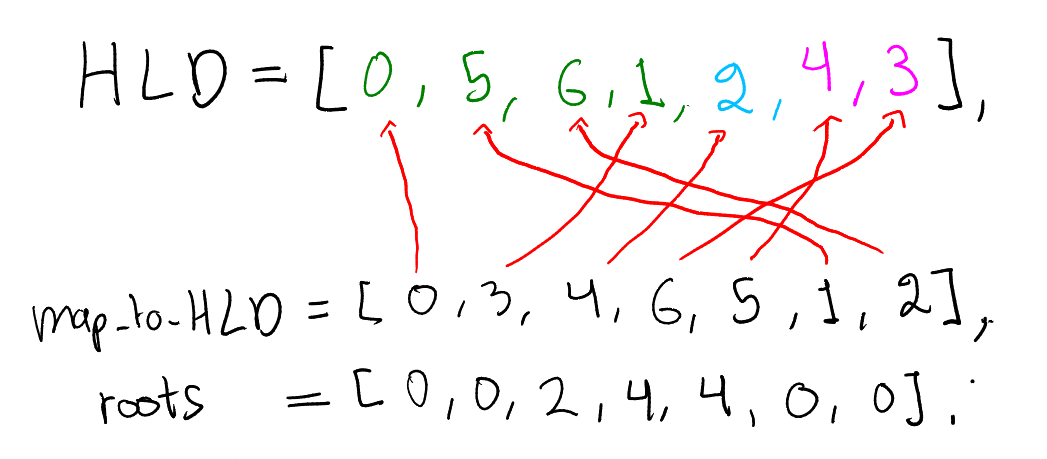 HLD = [0, 5, 6, 1, 2, 4, 3],
map_to_HLD = [0, 3, 4, 6, 5, 1, 2],
roots = [0, 0, 2, 4, 4, 0, 0].